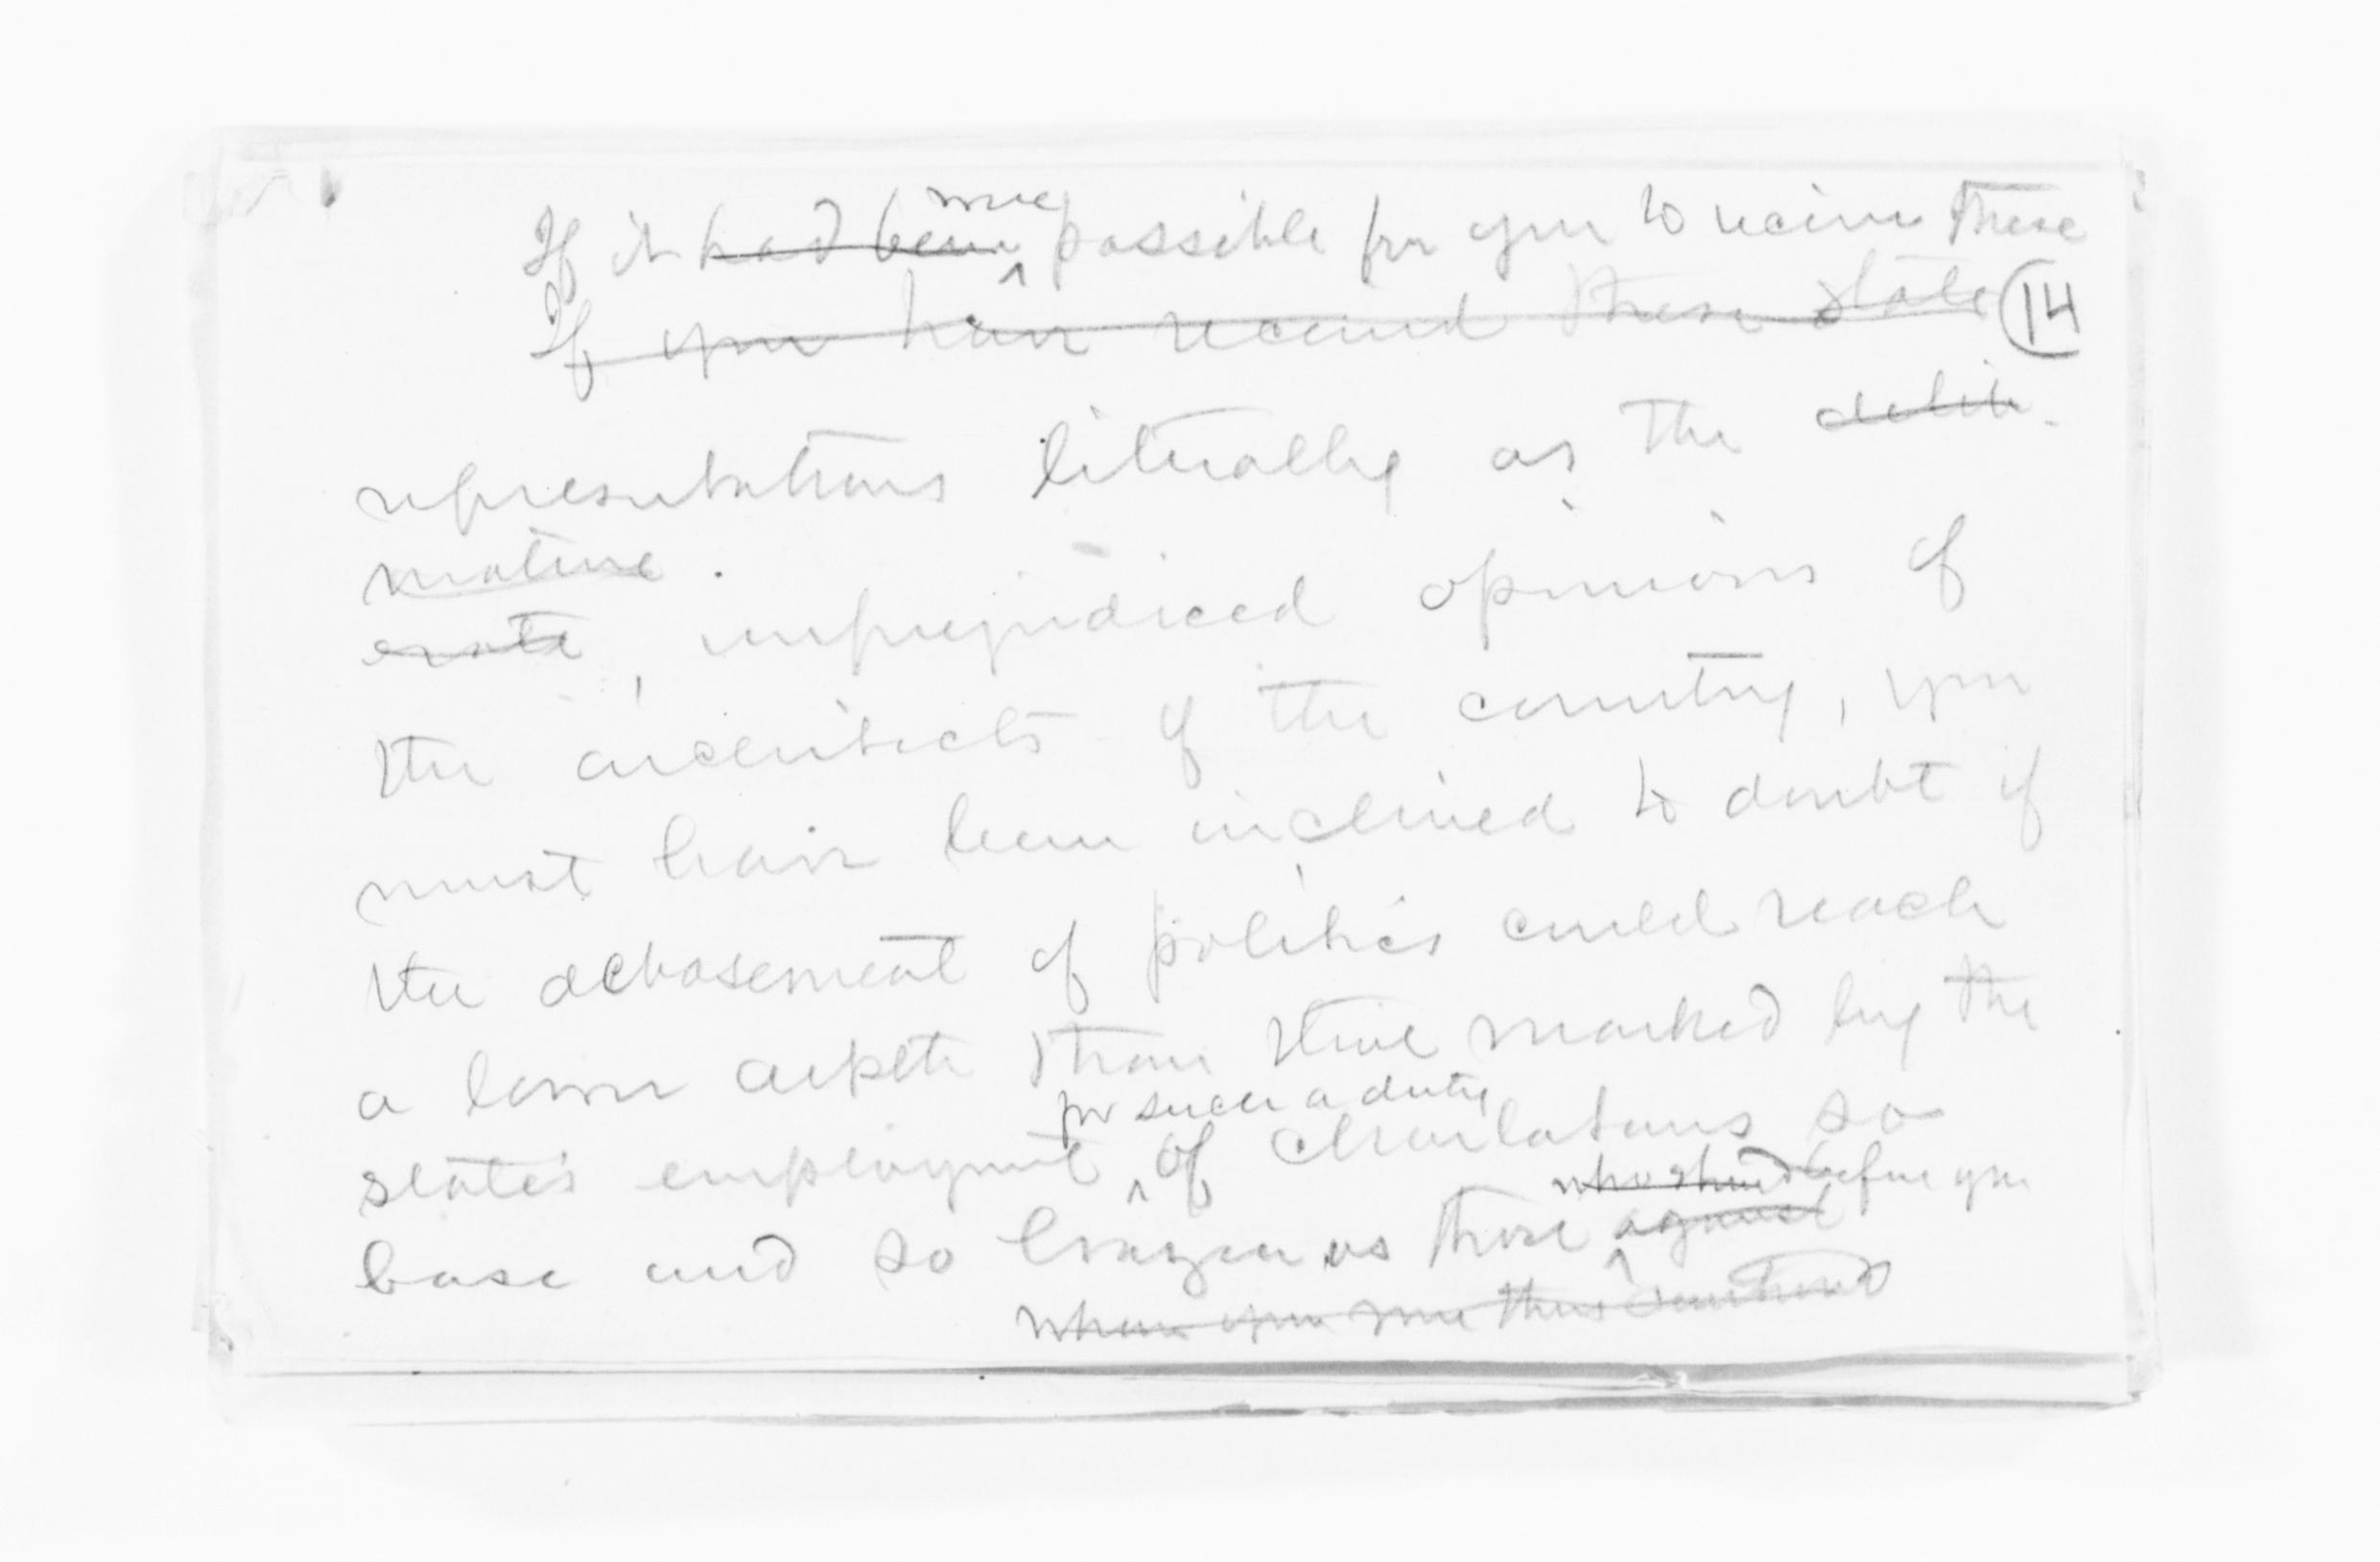 more
If it had been possible for you to receive these
If you have received these state
14
representations literally as the delib-
mature
erate, unprejudiced opinions of
the architects of the country, you
must have been inclined to doubt if
the debasement of politics could reach
a lower depth than that marked by the
for such a duty
state's employment of charlatans so
who stand before you
base and so brazen as those against
whom you are thus